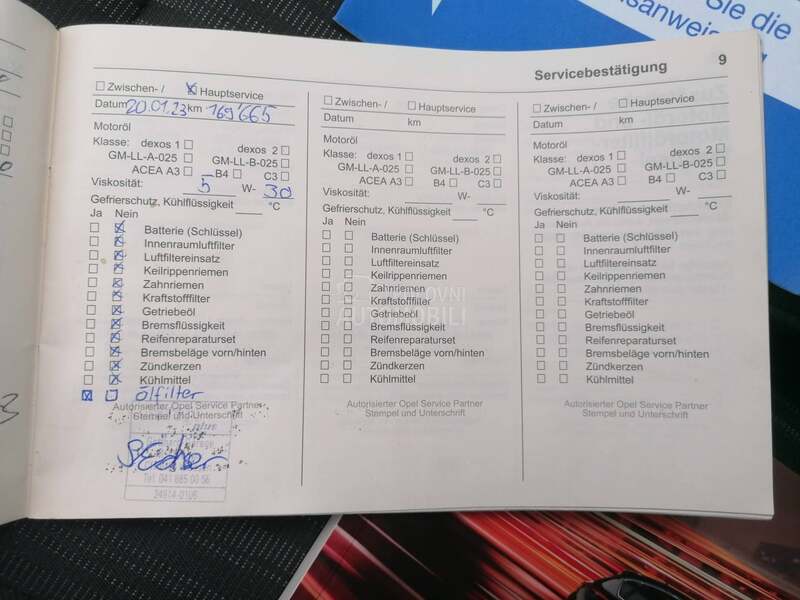 Sie die
sanweisu
Servicebestätigung 9
Zwischen- / Hauptservice
Datum 20.01.23 km 169'665
Motoröl
Klasse: dexos 1 dexos 2
GM-LL-A-025 GM-LL-B-025
ACEA A3 B4 C3
Viskosität: 5 W- 30
Gefrierschutz, Kühlflüssigkeit °C
Ja Nein
Batterie (Schlüssel)
Innenraumluftfilter
Luftfiltereinsatz
Keilrippenriemen
Zahnriemen
Kraftstofffilter
Getriebeöl
Bremsflüssigkeit
Reifenreparaturset
Bremsbeläge vorn/hinten
Zündkerzen
Kühlmittel
ölfilter
Autorisierter Opel Service Partner
Stempel und Unterschrift
plus
Tel. 041 885 00 56
Zwischen- / Hauptservice
Datum km
Motoröl
Klasse: dexos 1 dexos 2
GM-LL-A-025 GM-LL-B-025
ACEA A3 B4 C3
Viskosität: W-
Gefrierschutz, Kühlflüssigkeit °C
Ja Nein
Batterie (Schlüssel)
Innenraumluftfilter
Luftfiltereinsatz
Keilrippenriemen
Zahnriemen
Kraftstofffilter
Getriebeöl
Bremsflüssigkeit
Reifenreparaturset
Bremsbeläge vorn/hinten
Zündkerzen
Kühlmittel
Autorisierter Opel Service Partner
Stempel und Unterschrift
Zwischen- / Hauptservice
Datum km
Motoröl
Klasse: dexos 1 dexos 2
GM-LL-A-025 GM-LL-B-025
ACEA A3 B4 C3
Viskosität: W-
Gefrierschutz, Kühlflüssigkeit °C
Ja Nein
Batterie (Schlüssel)
Innenraumluftfilter
Luftfiltereinsatz
Keilrippenriemen
Zahnriemen
Kraftstofffilter
Getriebeöl
Bremsflüssigkeit
Reifenreparaturset
Bremsbeläge vorn/hinten
Zündkerzen
Kühlmittel
Autorisierter Opel Service Partner
Stempel und Unterschrift